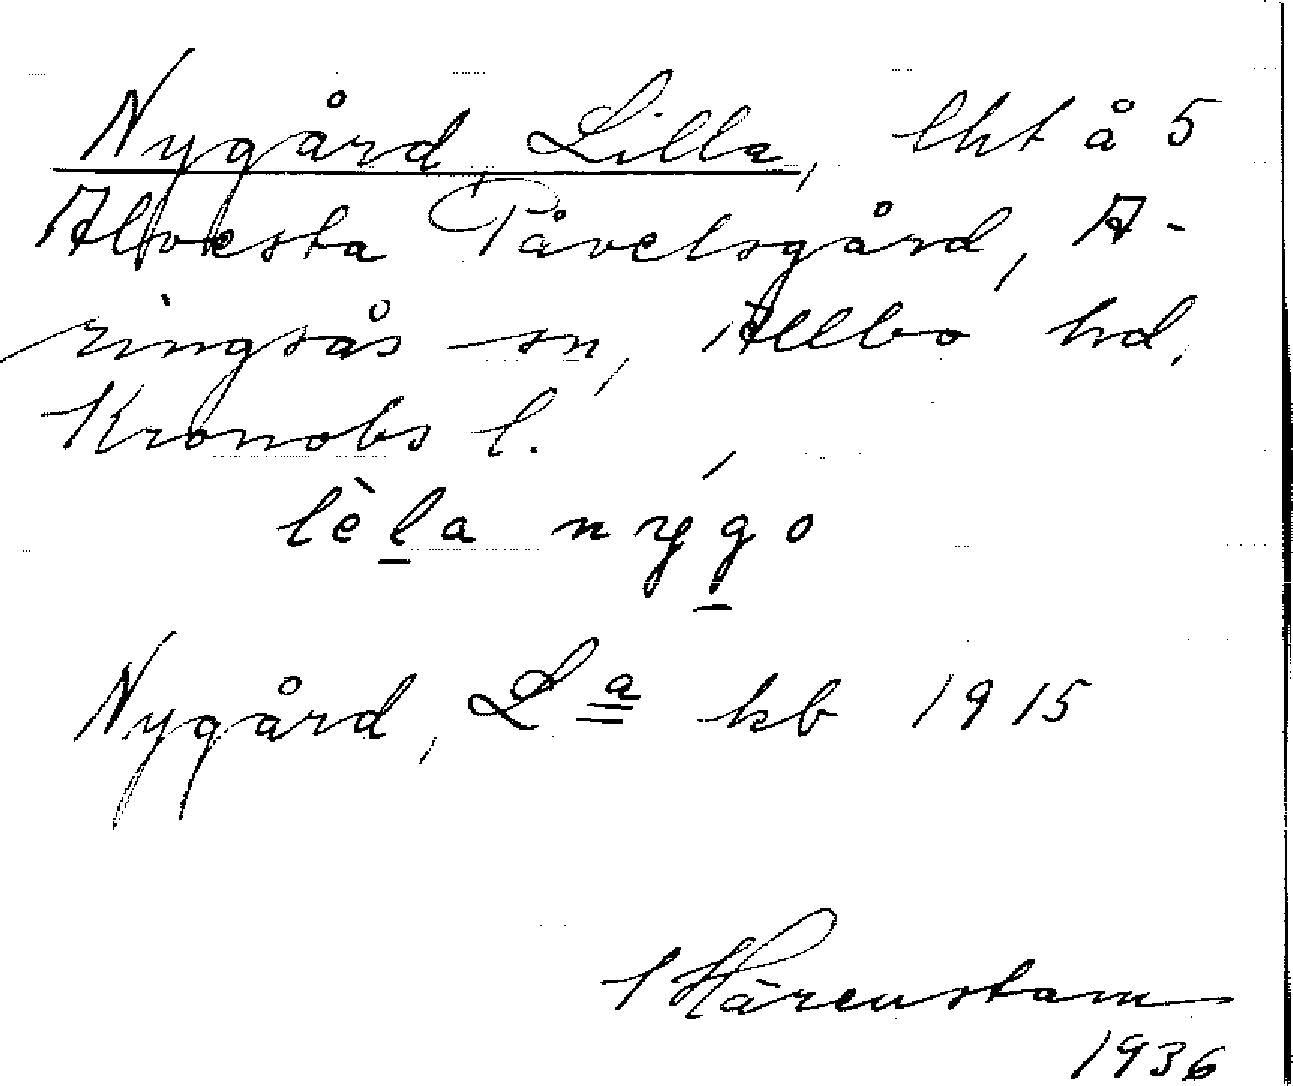 Nygård, Lilla, lht å 5
Alvesta Påvelsgård, A-
ringsås sn, Allbo hd,
Kronobs l.
lèla nýgo
Nygård, La kb 1915
Härenstam
1936